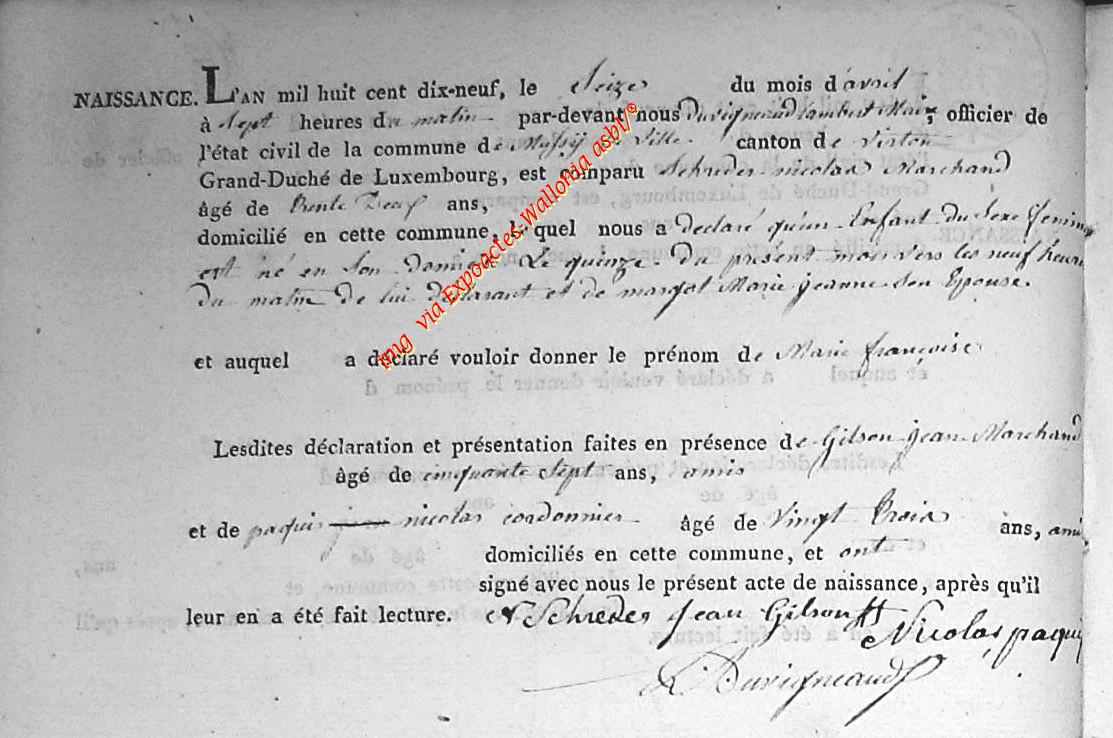 NAISSANCE. L'AN mil huit cent dix-neuf, le Seize du mois d'avril
à Sept heures du matin par-devant nous Duvigneaud Lambert officier de
l'état civil de la commune de Mussy la Ville canton de Virton
Grand-Duché de Luxembourg, est comparu Schreder nicolas Marchand
âgé de trente Deux ans,
domicilié en cette commune, lequel nous a declaré qu'un Enfant du Sexe feminin
est né en Son Domicile Le quinze du present mois vers les neuf heures
du matin de lui declarant et de margot Marie jeanne Son Epouse.
et auquel a déclaré vouloir donner le prénom de Marie françoise
Lesdites déclaration et présentation faites en présence de Gilson jean Marchand
âgé de cinquante Sept ans, amis
et de paquis nicolas cordonnier âgé de Vingt trois ans, ami
domiciliés en cette commune, et ont
signé avec nous le présent acte de naissance, après qu'il
leur en a été fait lecture. N Schreder Jean Gilson
Nicolas paquis
L. Duvigneaud
img via Expoactes-Wallonia asbl/©